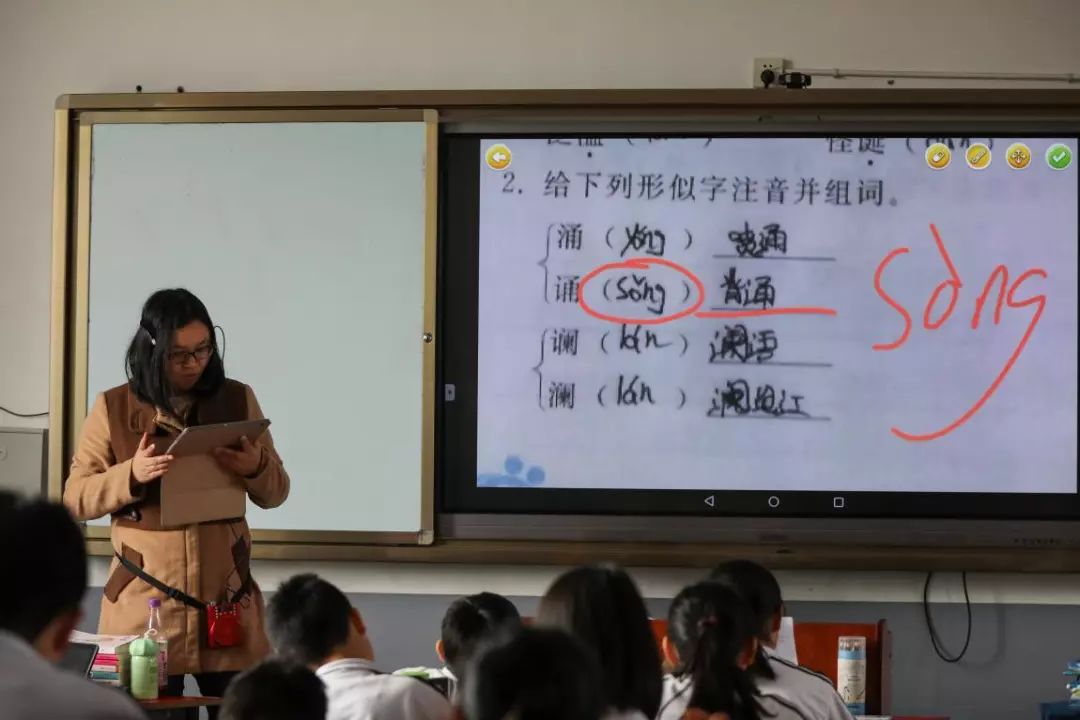 怪诞 (
2. 给下列形似字注音并组词。
涌 (yǒng)
诵 (sǒng) 背诵 sòng
谰 (lán) 谰语
澜 (lán) 澜沧江